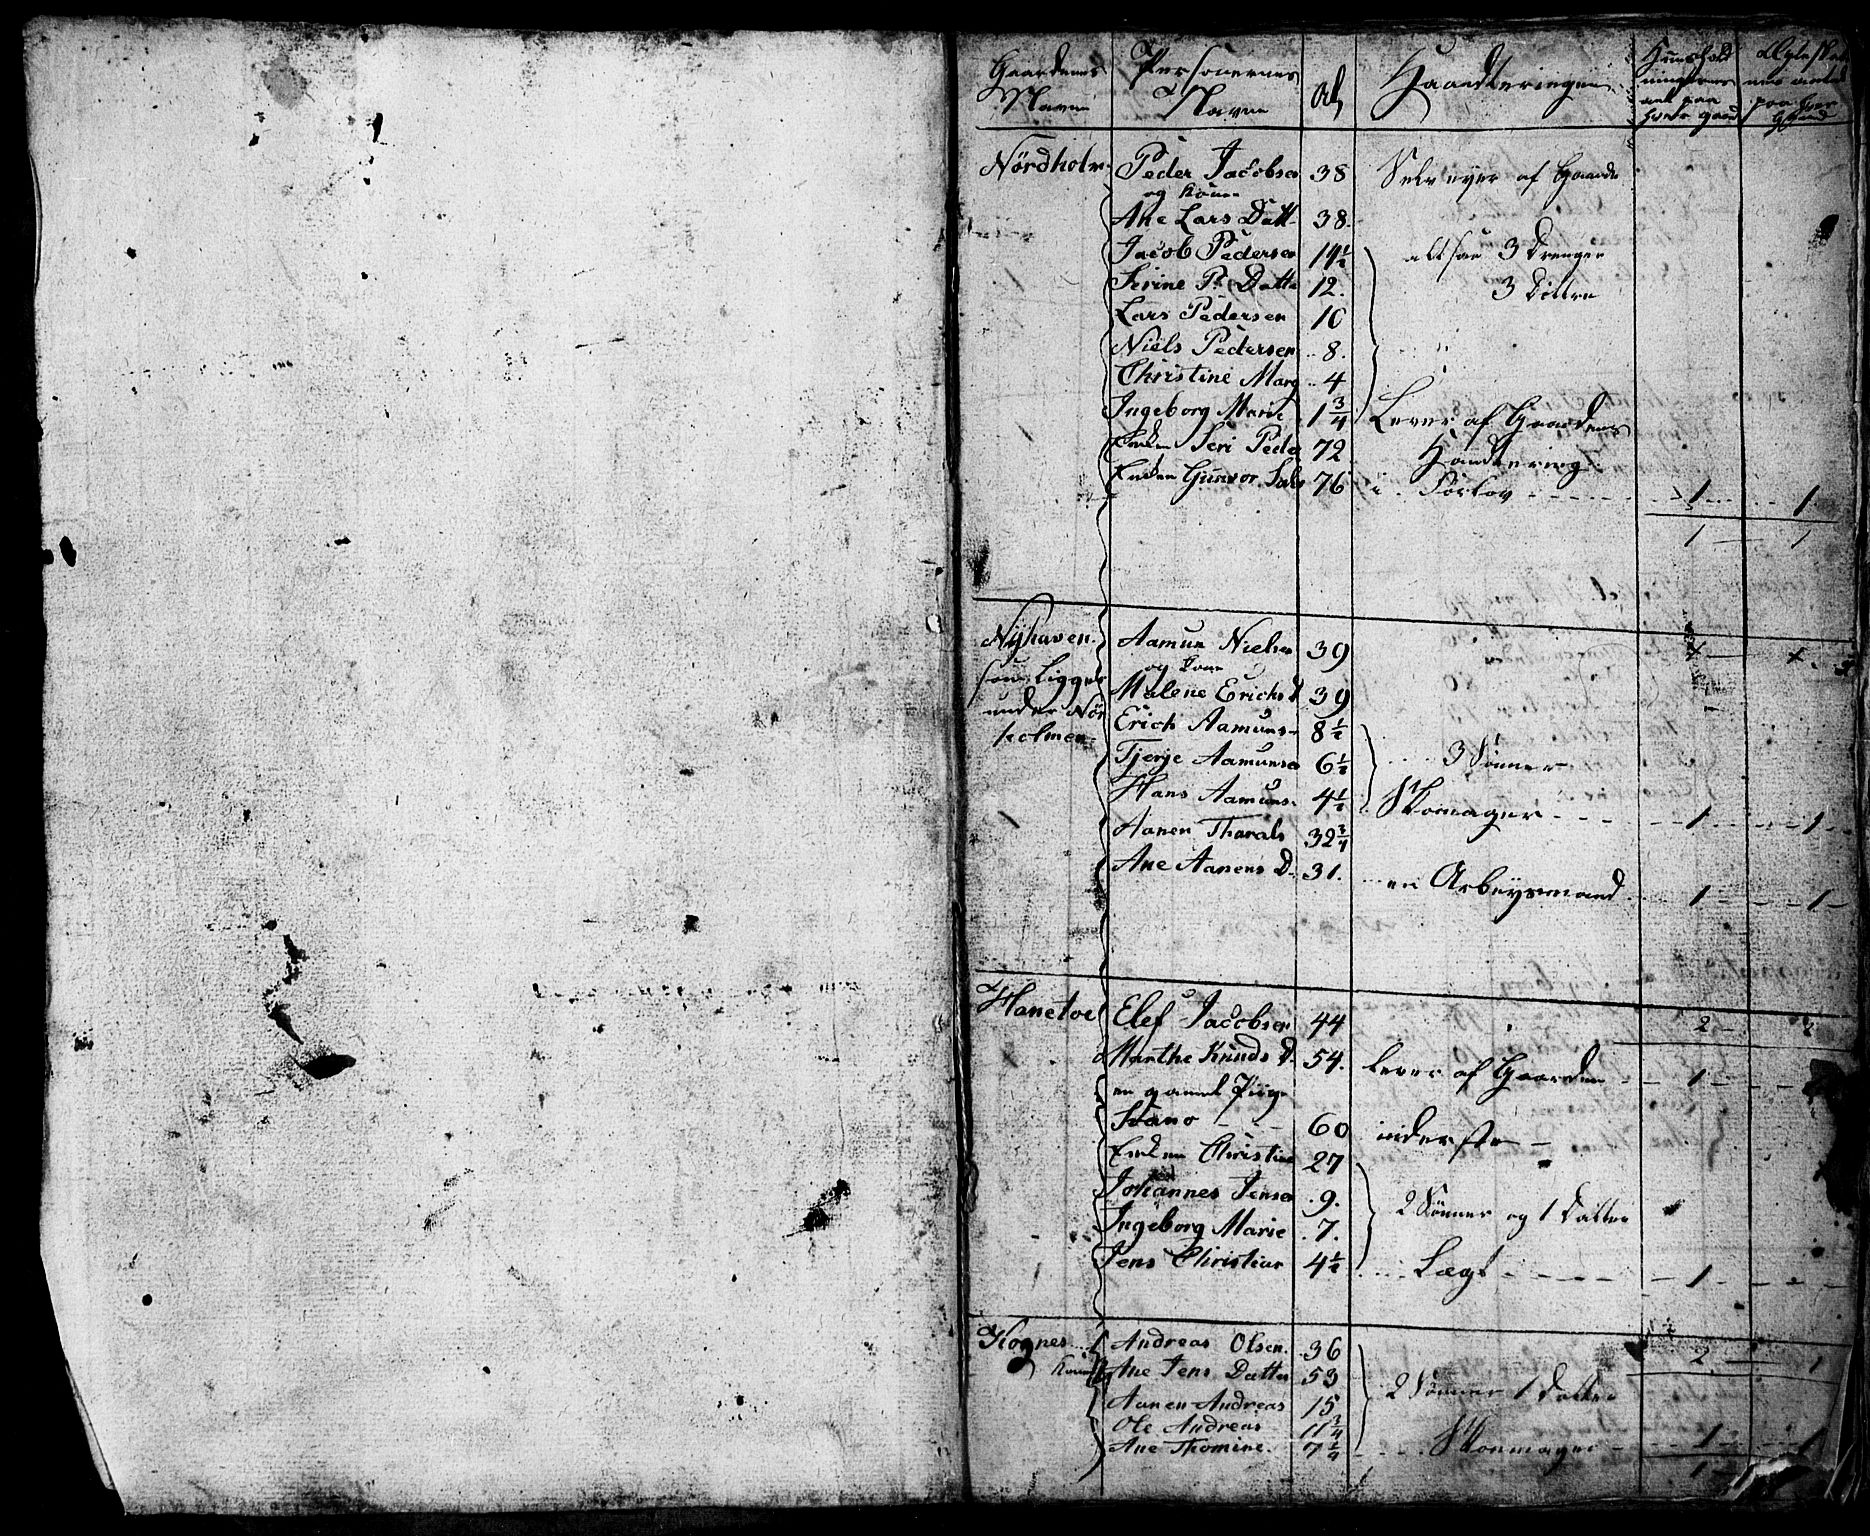 Gaardenes Navne | Personernes Navne | Al, | Haandteringen | Huusholdningernes ant paa hver gaard | Ægteskab paa hver Gaard
Nördholm | Peder Jacobsen | 38 | Selv eyer af Gaarde
og Kone
Ane Lars Datt | 38
Jacob Pedersen | 14 1/2 | altsaa 3 Drenge
Serine Ps Datte | 12. | 3 Döttre
Lars Pedersen | 10
Niels Pedersen | 8.
Christine Marg | 4
Ingeborg Marie | 1 3/4 | Lever af Gaardens
Enken Seri Peder | 72 | Handtering
Enken Gunvor | 76 | i Torlov | 1 | 1
1 | 1
Nijhaven | Aamun Nielsen | 39
som Ligger | og Kone
under Nör | Malene Erichs D | 39
holmen | Erich Aamuns- | 8 1/2
Tjerje Aamunsen | 6 1/2 | 3 Sönner
Hans Aamuns- | 4 1/2 | Skomager | 1 | 1
Aanen Tharals | 32 3/4
Ane Aanens D. | 31. | en Arbeysmand | 1 | 1
Hanetoe | Elef Jacobsen | 44 | 2 | 2
Marthe Knuds D. | 54. | Lever af Gaarden | 1
en gamel Pige
| 60 | inderste
Enken Christine | 27
Johannes Jensen | 9.
Ingeborg Marie | 7. | 2 Sönner og 1 Datter
Jens Christian | 4 1/2 | Lægt | 1
Kognes | Andreas Olsen. | 36 | 2 | 1
Kone | Ane Jens Datter | 53
Aanen Andreas | 15 | 2 Sönner 1 Datter
Ole Andreas | 11 3/4
Ane Thomine. | 7 1/4 | Skomager | 1 | 1
1